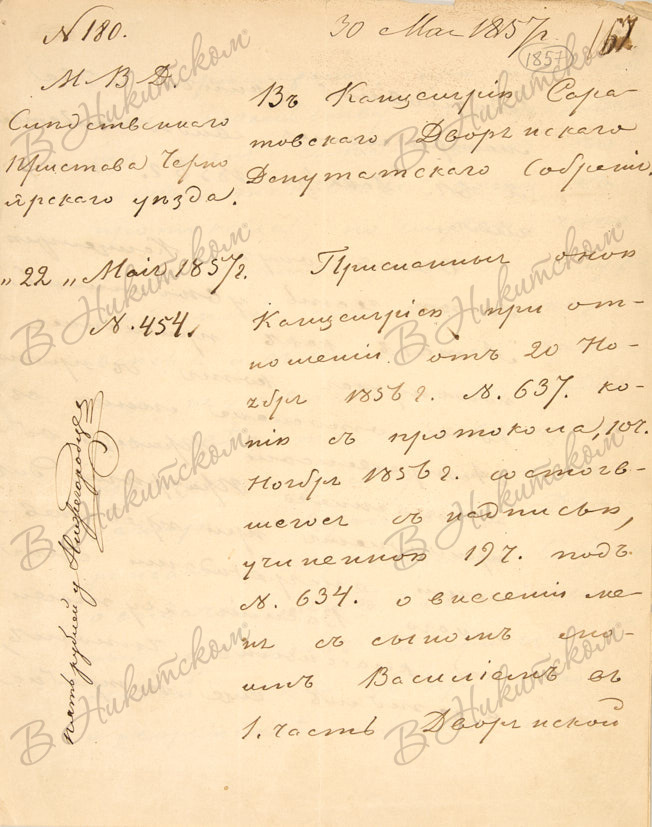 N 180.
30 Мая 1857 г.
1857
167
М. В. Д.
Слѣдственнаго
Пристава Черно
ярскаго уѣзда.
"22" Маія 1857 г.
N. 454.
Въ Канцелярію Сара-
товскаго Дворянскаго
Депутатскаго Собранія.
Присланныя оною
Канцеляріею при от-
ношеніи отъ 20 Но-
ября 1856 г. N. 637. ко-
пію съ протокола, 10 ч.
Ноября 1856 г. состояв-
шагося съ надписью,
учиненною 19 ч. подъ
N. 634. о внесеніи ме-
ня съ сыномъ мо-
имъ Василіемъ въ
1. часть Дворянской
пять рублей у Нижегородцев
В Никитском